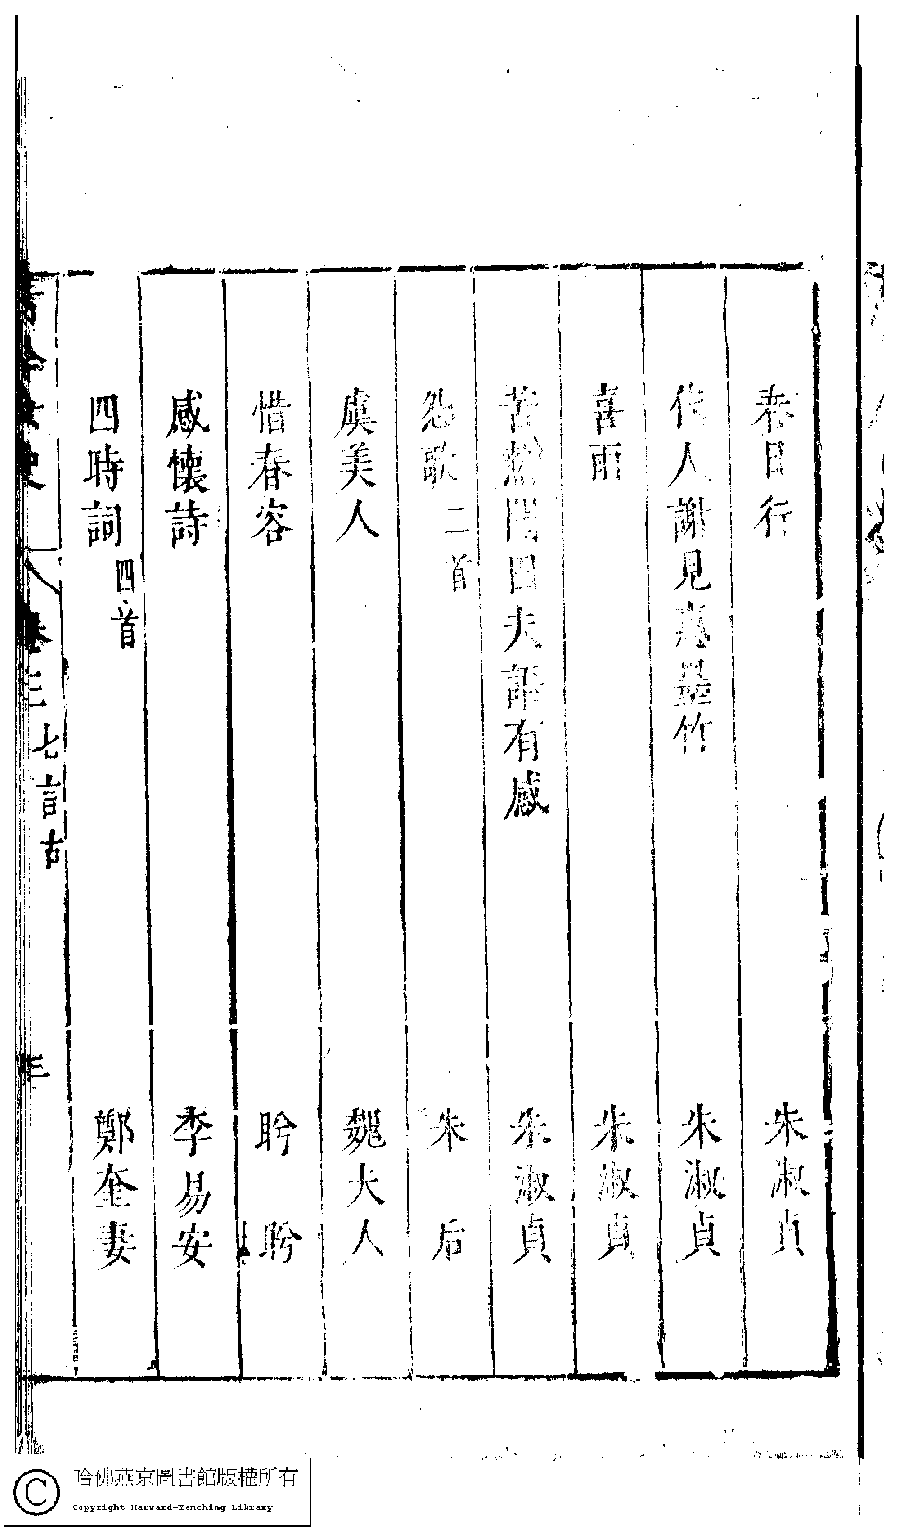 春日行 朱淑貞
代人謝見惠墨竹 朱淑貞
喜雨 朱淑貞
苦熱聞田夫語有感 朱淑貞
怨歌 二首 朱后
虞美人 魏夫人
惜春容 盼盼
感懷詩 李易安
四時詞 四首 鄭奎妻
女史 卷三 七言古 三
哈佛燕京圖書館版權所有
Copyright Harvard-Yenching Library